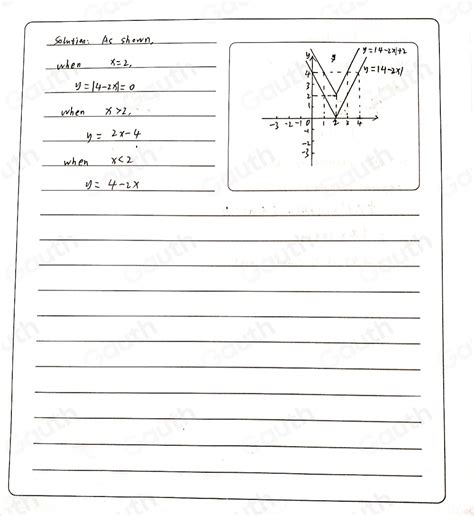 Solution: As shown,
when x=2,
y=|4-2x|=0
when x>2,
y= 2x-4
when x<2
y= 4-2x
y=|4-2x|+2
y=|4-2x|
y
4
3
2
1
-3 -2 -1 0 1 2 3 4
-1
-2
-3
Gauth